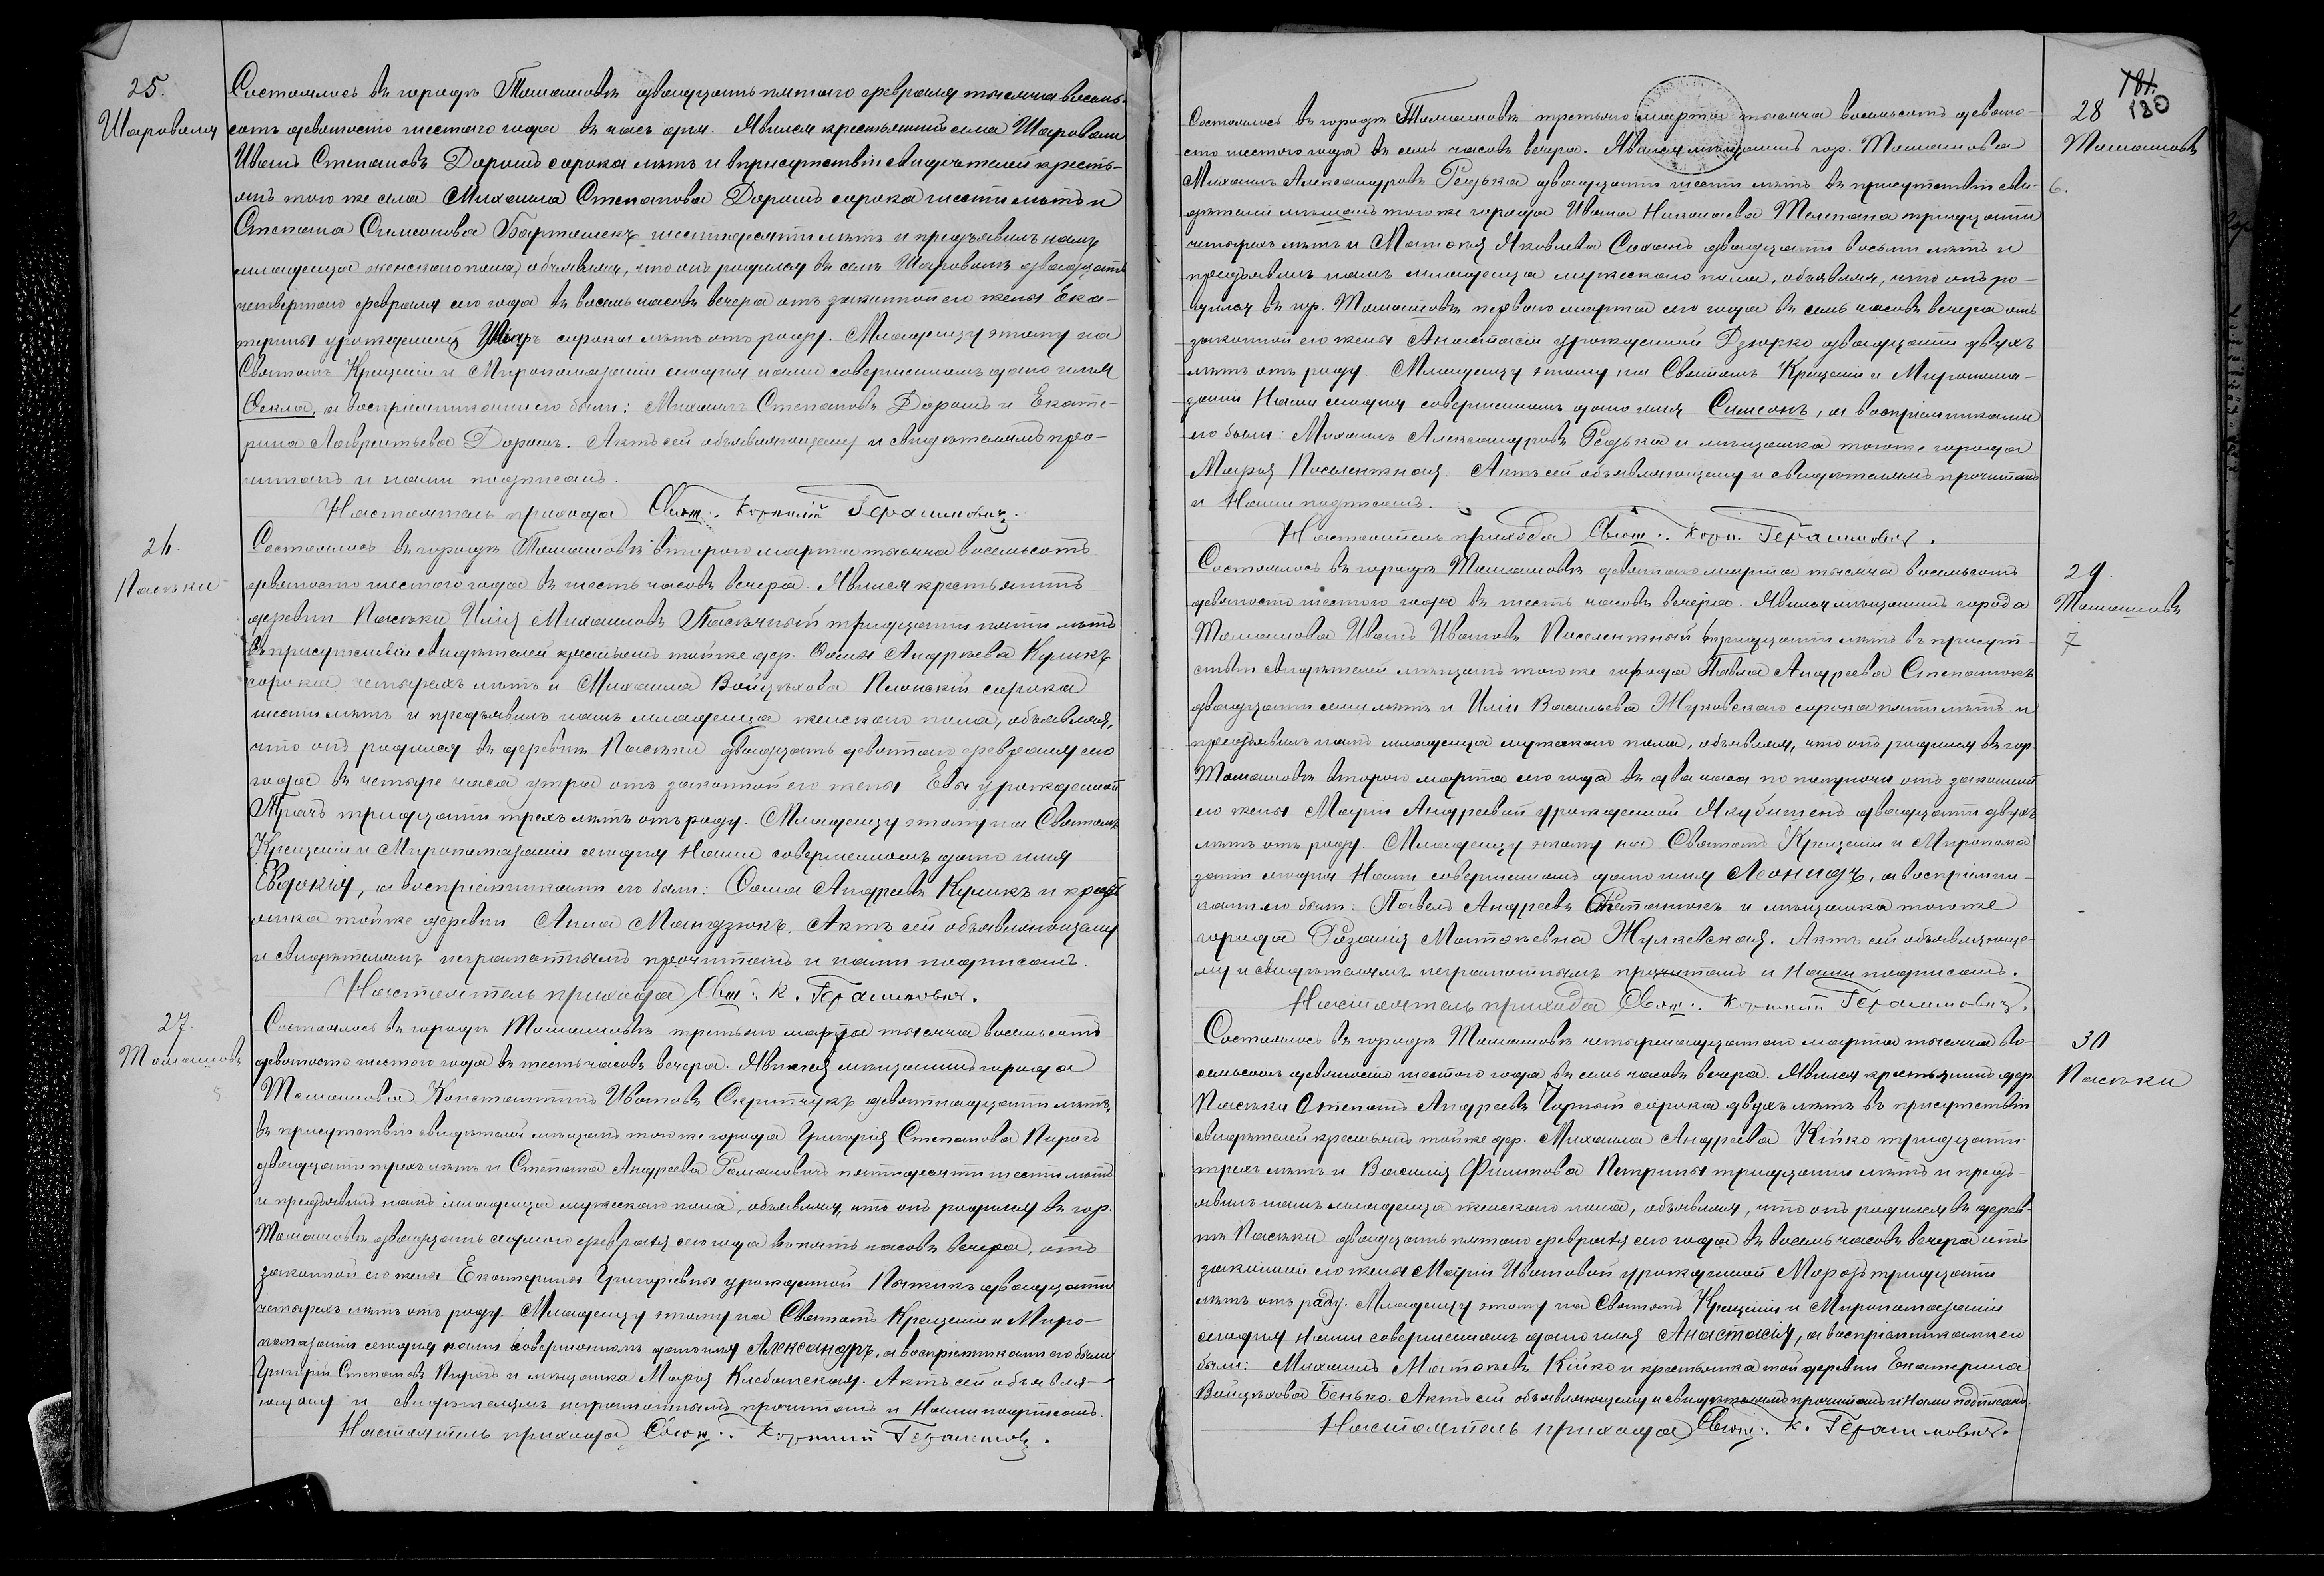 25.
Шароволя
Состоялось въ городѣ Томашовѣ двадцать пятаго февраля тысяча восемь-
сотъ девяносто шестого года въ часъ дня. Явился крестьянинъ села Шароволи
Иванъ Степановъ Дорошъ сорока лѣтъ и въ присутствіи свидѣтелей кресть-
янъ того же села Михаила Степанова Дорошъ сорока шести лѣтъ и
Степана Симеонова Барташекъ шестидесяти лѣтъ и предъявилъ намъ
младенца женскаго пола, объявляя, что онъ родился въ селѣ Шароволѣ двадцать
четвертаго февраля сего года въ восемь часовъ вечера отъ законной его жены Ека-
терины урожденной сорока лѣтъ отъ роду. Младенцу этому на
Святомъ Крещеніи и Мѵропомазаніи сегодня нами совершенномъ дано имя
Ѳекла, а воспріемниками его были: Михаилъ Степановъ Дорошъ и Екате-
рина Лаврентьева Дорошъ. Актъ сей объявляющему и свидѣтелямъ про-
читанъ и нами подписанъ.
Настоятель прихода Свящ. Корнилій Герасимовичъ.
26.
Пасѣки
Состоялось въ городѣ Томашовѣ второго марта тысяча восемьсотъ
девяносто шестого года въ шесть часовъ вечера. Явился крестьянинъ
деревни Пасѣки Илія Михаиловъ Пасѣчный тридцати пяти лѣтъ
въ присутствіи свидѣтелей крестьянъ той же дер. Ѳомы Андреева Куликъ
сорока четырехъ лѣтъ и Михаила Войцѣхова Плонскій сорока
шести лѣтъ и предъявилъ намъ младенца женскаго пола, объявляя,
что онъ родился въ деревнѣ Пасѣки двадцать девятаго февраля сего
года въ четыре часа утра отъ законной его жены Евы урожденной
Ткачъ тридцати трехъ лѣтъ отъ роду. Младенцу этому на Святомъ
Крещеніи и Мѵропомазаніи сегодня Нами совершенномъ дано имя
Евдокія, а воспріемниками его были: Ѳома Андреевъ Куликъ и кресть-
янка той же деревни Анна Мандзюкъ. Актъ сей объявляющему
и свидѣтелямъ неграмотнымъ прочитанъ и нами подписанъ.
Настоятель прихода Свящ. К. Герасимовичъ.
27.
Томашовъ
5
Состоялось въ городѣ Томашовѣ третьяго марта тысяча восемьсотъ
девяносто шестого года въ шесть часовъ вечера. Явился мѣщанинъ города
Томашова Константинъ Ивановъ Скрипчукъ девятнадцати лѣтъ,
въ присутствіи свидѣтелей мѣщанъ того же города Григорія Степанова Пирогъ
двадцати трехъ лѣтъ и Степана Андреева Романовичъ пятидесяти шести лѣтъ
и предъявилъ намъ младенца мужескаго пола, объявляя, что онъ родился въ гор.
Томашовѣ двадцать седьмого февраля сего года въ пять часовъ вечера, отъ
законной его жены Екатерины Григоріевны урожденной двадцати
четырехъ лѣтъ отъ роду. Младенцу этому на Святомъ Крещеніи и Мѵро-
помазаніи сегодня нами совершенномъ дано имя Александръ, а воспріемниками его были
Григорій Степановъ Пирогъ и мѣщанка Марія. Актъ сей объявля-
ющему и свидѣтелямъ неграмотнымъ прочитанъ и Нами подписанъ.
Настоятель прихода Свящ. Корнилій Герасимовичъ.
181.
180
28
Томашовъ
6.
Состоялось въ городѣ Томашовѣ третьяго марта тысяча восемьсотъ девяно-
сто шестого года въ семь часовъ вечера. Явился мѣщанинъ гор. Томашова
Михаилъ Александровъ Редька двадцати шести лѣтъ въ присутствіи сви-
дѣтелей мѣщанъ того же города Ивана Николаева тридцати
четырехъ лѣтъ и Матѳея Яковлева двадцати восьми лѣтъ и
предъявилъ намъ младенца мужескаго пола, объявляя, что онъ ро-
дился въ гор. Томашовѣ перваго марта сего года въ семь часовъ вечера отъ
законной его жены Анастасіи урожденной Дзюрко двадцати двухъ
лѣтъ отъ роду. Младенцу этому на Святомъ Крещеніи и Мѵропома-
заніи Нами сегодня совершенномъ дано имя Симеонъ, а воспріемниками
его были: Михаилъ Александровъ Редька и мѣщанка того же города
Марья Поселенжная. Актъ сей объявляющему и свидѣтелямъ прочитанъ
и Нами подписанъ.
Настоятель прихода Свящ. Корн. Герасимовичъ.
29.
Томашовъ
7
Состоялось въ городѣ Томашовѣ девятаго марта тысяча восемьсотъ
девяносто шестого года въ шесть часовъ вечера. Явился мѣщанинъ города
Томашова Иванъ Ивановъ Поселенжный тридцати лѣтъ въ присут-
ствіи свидѣтелей мѣщанъ того же города Павла Андреева Степанюкъ
двадцати семи лѣтъ и Иліи Васильева Жуковскаго сорока пяти лѣтъ и
предъявилъ намъ младенца мужескаго пола, объявляя, что онъ родился въ гор.
Томашовѣ второго марта сего года въ два часа по полуночи отъ законной
его жены Маріи Андреевой урожденной двадцати двухъ
лѣтъ отъ роду. Младенцу этому на Святомъ Крещеніи и Мѵропома
заніи сегодня Нами совершенномъ дано имя Леонидъ, а воспріемни-
ками его были: Павелъ Андреевъ Степанюкъ и мѣщанка того же
города Розалія Матѳеевна Жулкевская. Актъ сей объявляюще-
му и свидѣтелямъ неграмотнымъ прочитанъ и Нами подписанъ.
Настоятель прихода Свящ. Корнилій Герасимовичъ.
30
Пасѣки
Состоялось въ городѣ Томашовѣ четырнадцатаго марта тысяча во-
семьсотъ девяносто шестого года въ семь часовъ вечера. Явился крестьянинъ дер.
Пасѣки Степанъ Андреевъ Чорный сорока двухъ лѣтъ въ присутствіи
свидѣтелей крестьянъ той же дер. Михаила Андреева Кійко тридцати
трехъ лѣтъ и Василія Филипова Петрины тридцати лѣтъ и предъ-
явилъ намъ младенца женскаго пола, объявляя, что онъ родился въ дерев-
нѣ Пасѣки двадцать пятаго февраля сего года въ восемь часовъ вечера отъ
законной его жены Маріи Ивановой урожденной Морозъ тридцати
лѣтъ отъ роду. Младенцу этому на Святомъ Крещеніи и Мѵропомазаніи
сегодня Нами совершенномъ дано имя Анастасія, а воспріемниками его
были: Михаилъ Матѳеевъ Кійко и крестьянка той деревни Екатерина
Войцѣхова Бенько. Актъ сей объявляющему и свидѣтелямъ прочитанъ и Нами подписанъ.
Настоятель прихода Свящ. К. Герасимовичъ.